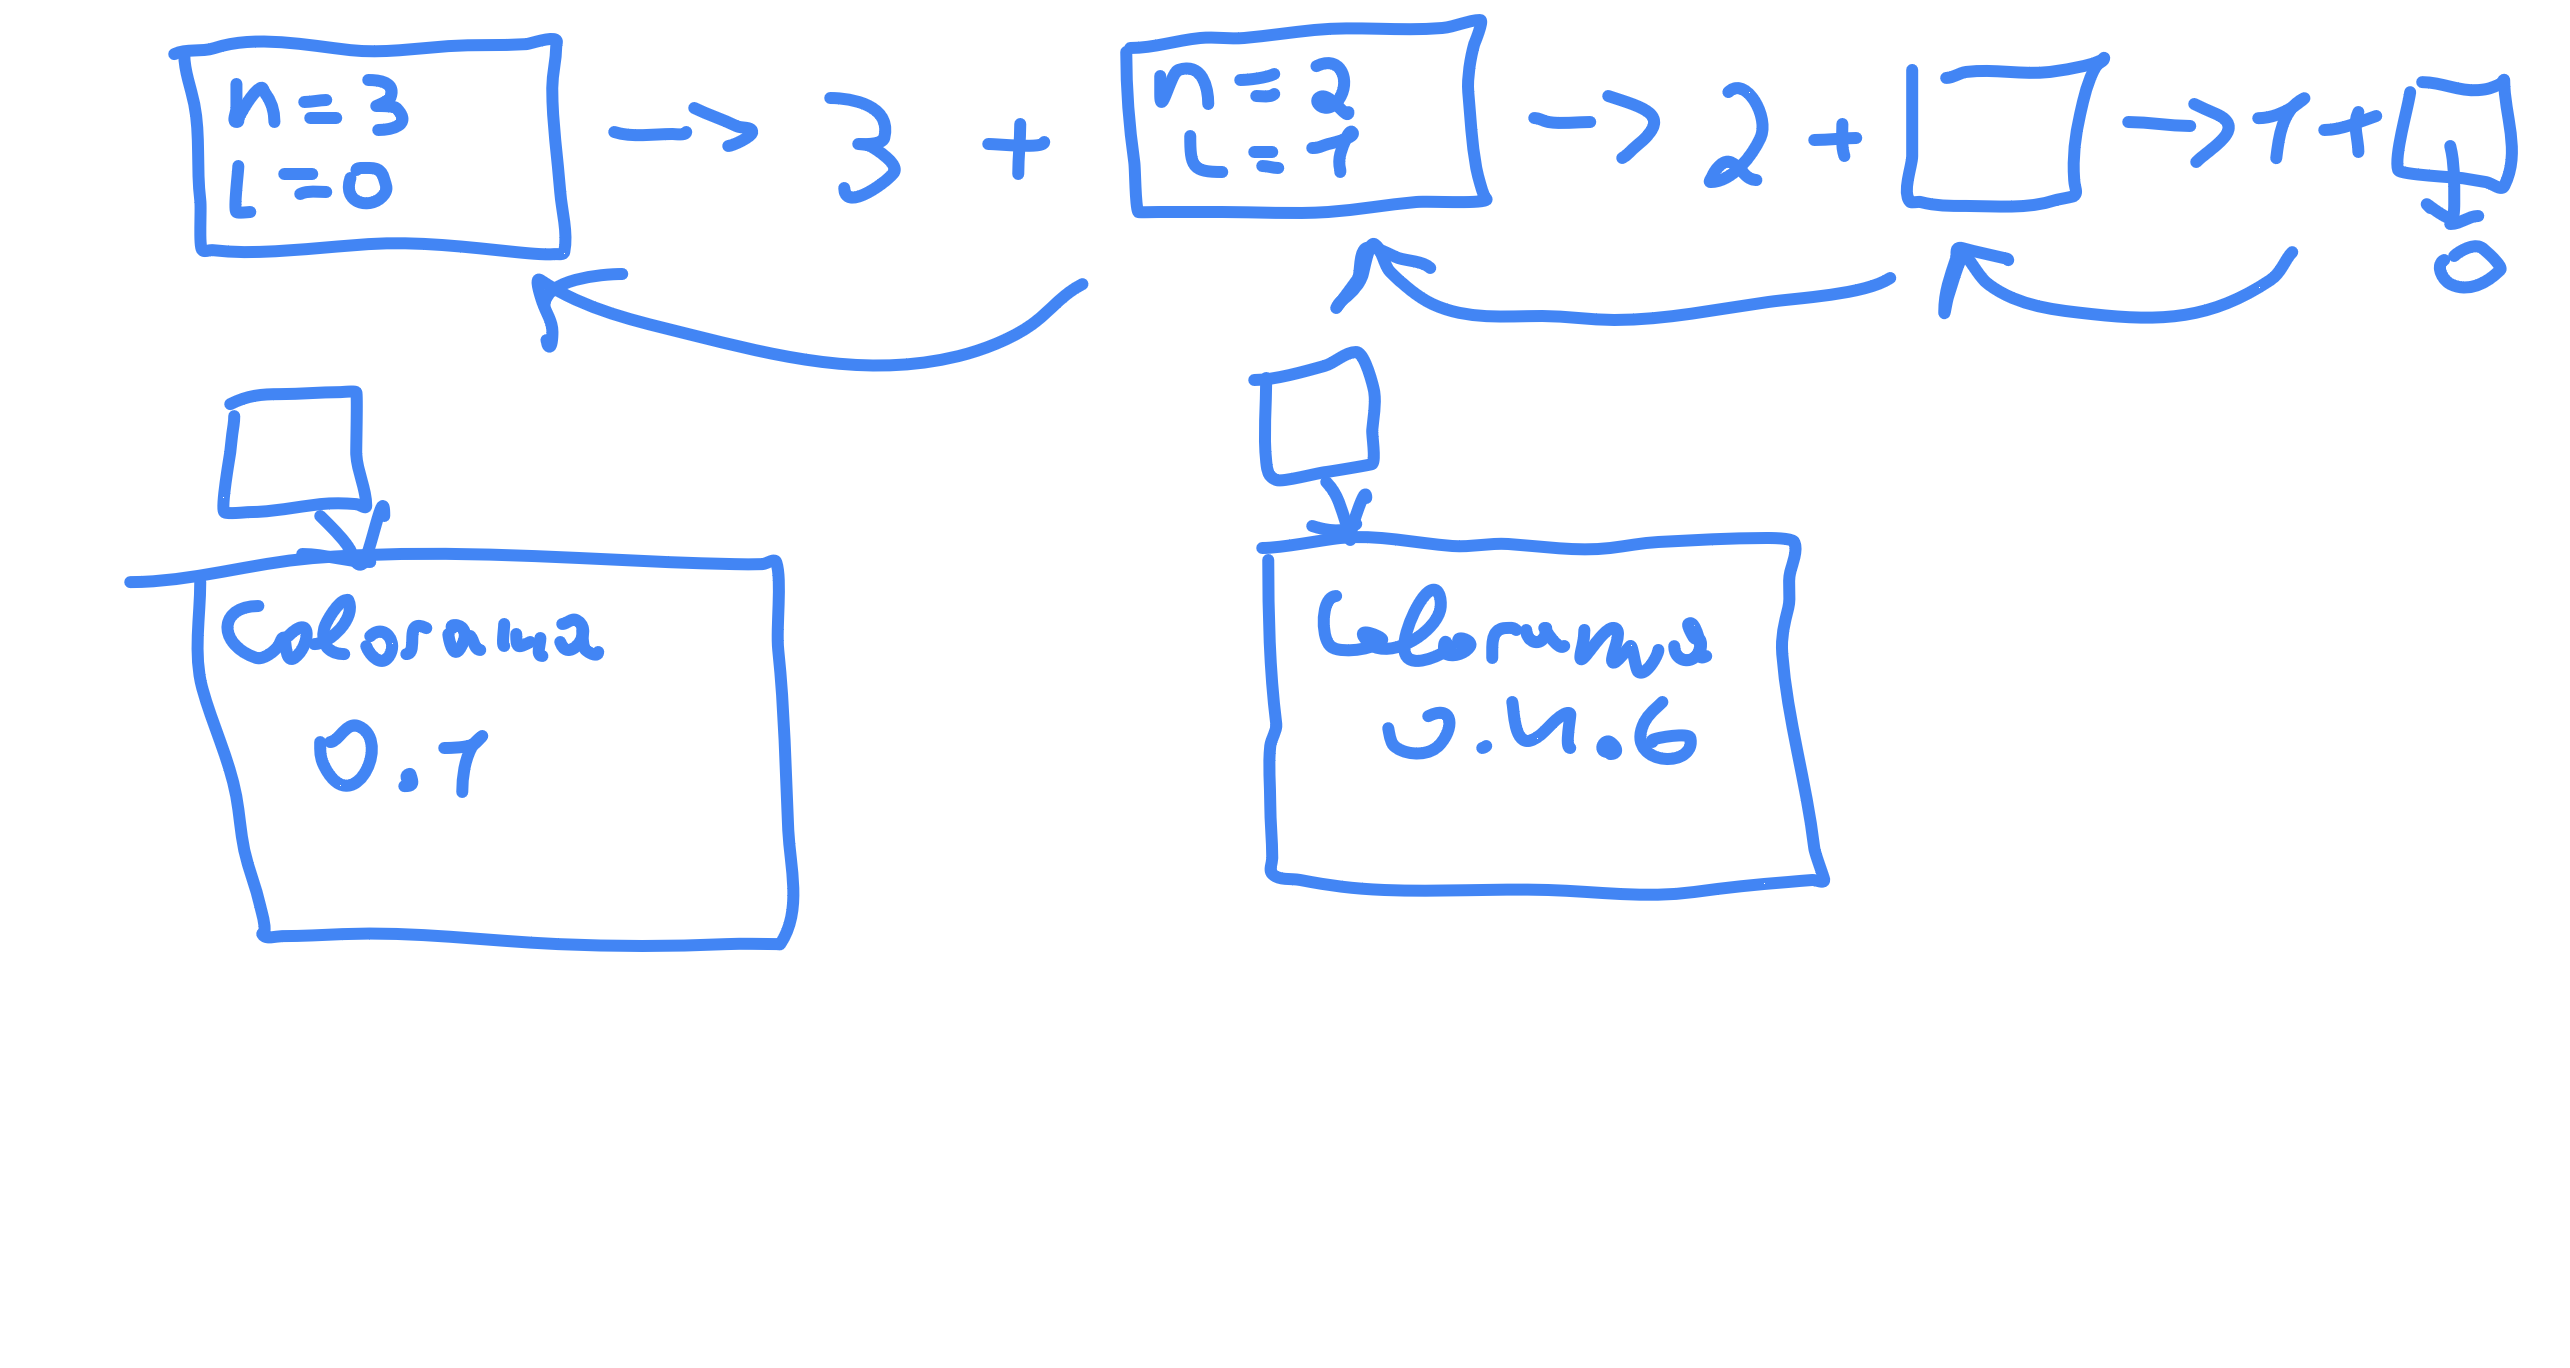 n = 3
L = 0
-> 3 +
n = 2
L = 1
-> 2 +
-> 1 +
0
Colorama
0.1
Colorama
0.4.6